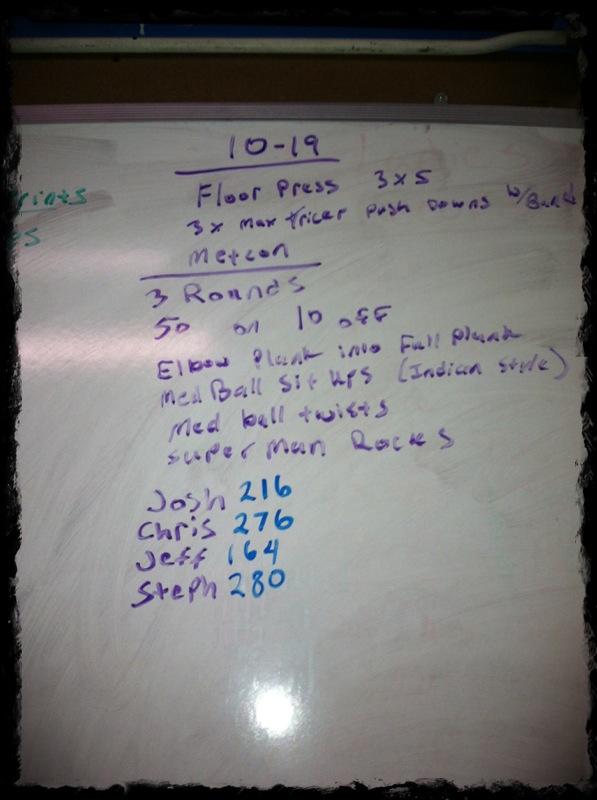 10-19
Floor Press 3x5
3x Max Tricep Push Downs w/Band
Metcon
3 Rounds
50 on 10 off
Elbow Plank into Full Plank
Med Ball Sit Ups (Indian Style)
Med ball twists
Super Man Rocks
Josh 216
Chris 276
Jeff 164
Steph 280